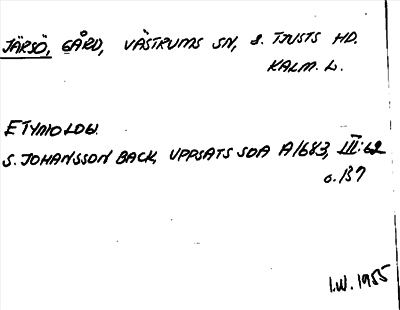 JÄRSÖ, GÅRD, VÄSTRUMS SN, S. TJUSTS HD.
KALM. L.
ETYMOLOG.
S. JOHANSSON BACK, UPPSATS SOA A1683, III:62
o. 137
I.W. 1955